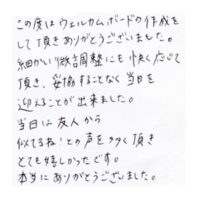 この度はウェルカムボードの作成を
して頂きありがとうございました。
細かい微調整にも快く応じて
頂き、妥協することなく当日を
迎えることが出来ました。
当日は友人から
似てるね!との声を多く頂き
とても嬉しかったです。
本当にありがとうございました。